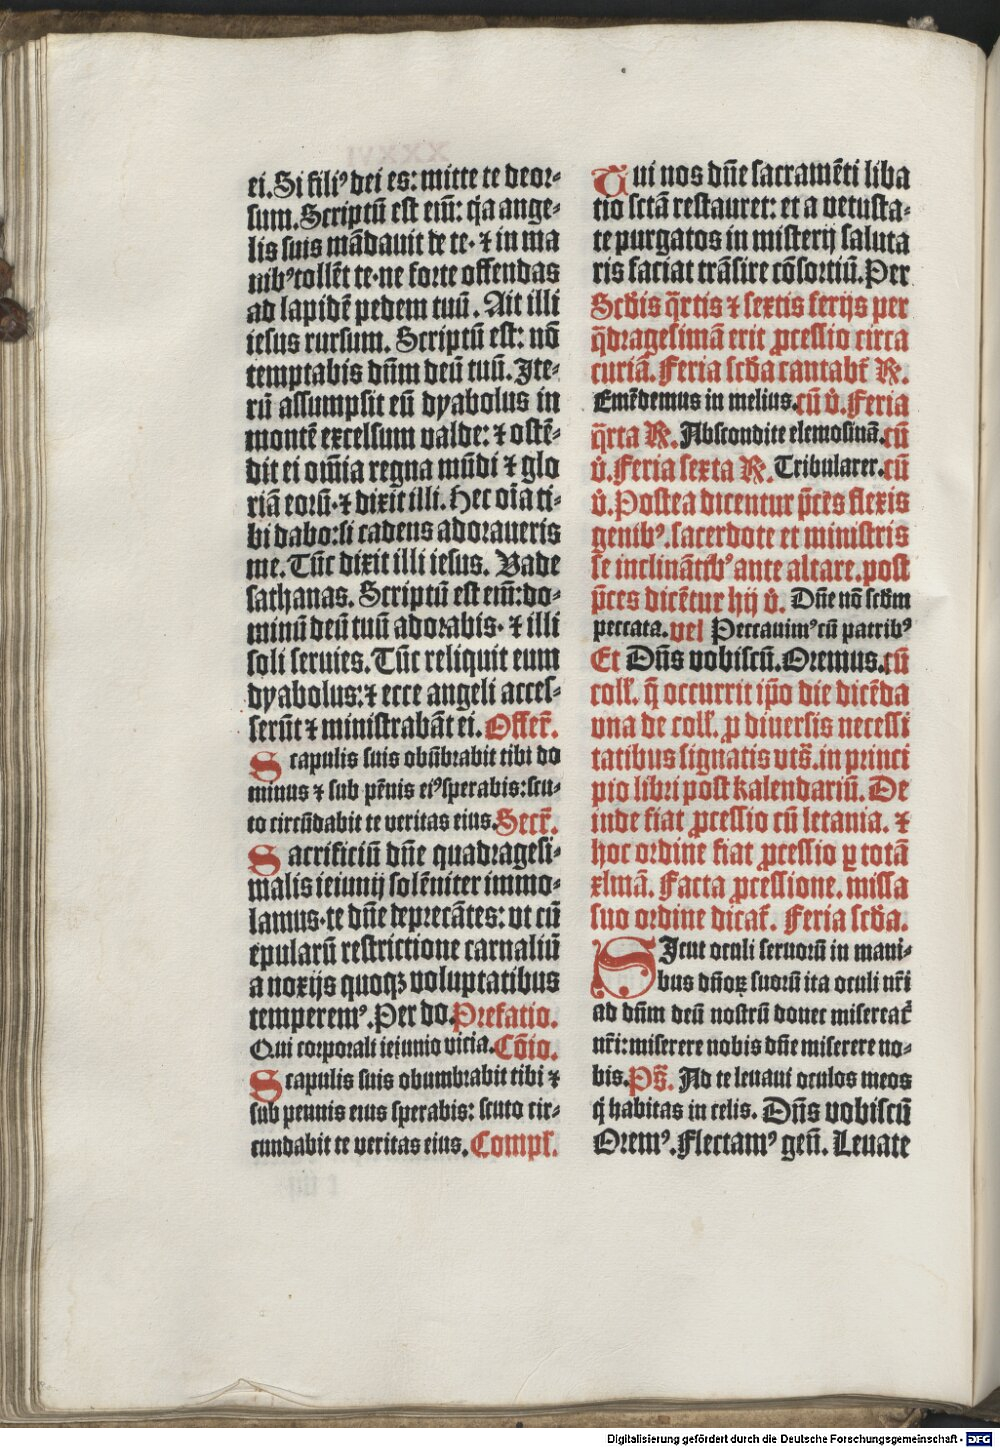 ei. Si filiꝰ dei es: mitte te deor-
sum. Scriptū est em̄: q̄a ange-
lis suis mādauit de te· ⁊ in ma
nibꝰ tollēt te·ne forte offendas
ad lapidē pedem tuū. Ait illi
iesus rursum. Scriptū est: nō
temptabis dn̄m deū tuū. Ite-
rū assumpsit eū dyabolus in
montē excelsum valde: ⁊ ostē-
dit ei om̄ia regna mūdi ⁊ glo
riā eorū·⁊ dixit illi. Hec oīa ti-
bi dabo:si cadens adoraueris
me. Tūc dixit illi iesus. Vade
sathanas. Scriptū est em̄: do-
minū deū tuū adorabis· ⁊ illi
soli seruies. Tūc reliquit eum
dyabolus:⁊ ecce angeli acces-
serūt ⁊ ministrabāt ei. Offert̄.
Scapulis suis obūbrabit tibi do
minus ⁊ sub pēnis eiꝰ sperabis: scu-
to circūdabit te veritas eius. Secr̄.
Sacrificiū dn̄e quadragesi-
malis ieiunij solēniter immo-
lamus·te dn̄e deprecātes: vt cū
epularū restrictione carnaliū
a noxijs quoqꝫ voluptatibus
temperemꝰ. Per do. Prefatio.
Qui corporali ieiunio vicia. Cōio.
Scapulis suis obumbrabit tibi ⁊
sub pennis eius sperabis: scuto cir-
cundabit te veritas eius. Compl̄.
Tui nos dn̄e sacramēti liba
tio sctā restauret: et a vetusta-
te purgatos in misterij saluta
ris faciat trāsire cōsortiū. Per
Scd̄is q̄rtis ⁊ sextis ferijs per
q̄dragesimā erit ꝓcessio circa
curiā. Feria scd̄a cantabt̄ R̄.
Emēdemus in melius. cū v̄. Feria
q̄rta R̄. Abscondite elemosinā. cū
v̄. Feria sexta R̄. Tribularer. cū
v̄. Postea dicentur p̄ces flexis
genibꝰ. sacerdote et ministris
se inclinātibꝰ ante altare. post
p̄ces dicētur hij v̄. Dn̄e nō scd̄m
peccata. vel Peccauimꝰ cū patribꝰ
Et Dn̄s vobiscū. Oremus. cū
coll̄. q̄ occurrit ip̄o die dicēda
vna de coll̄. ꝑ diuersis necessi
tatibus signatis vts̄. in princi
pio libri post kalendariū. De
inde fiat ꝓcessio cū letania. ⁊
hoc ordine fiat ꝓcessio ꝑ totā
xlmā. Facta ꝓcessione. missa
suo ordine dicat̄. Feria scd̄a.
SIcut oculi seruorū in mani-
bus dn̄oꝝ suorū ita oculi nr̄i
ad dn̄m deū nostrū donec misereat̄
nr̄i: miserere nobis dn̄e miserere no-
bis. Ps̄. Ad te leuaui oculos meos
q̄ habitas in celis. Dn̄s vobiscū
Oremꝰ. Flectamꝰ genū. Leuate
Digitalisierung gefördert durch die Deutsche Forschungsgemeinschaft - DFG